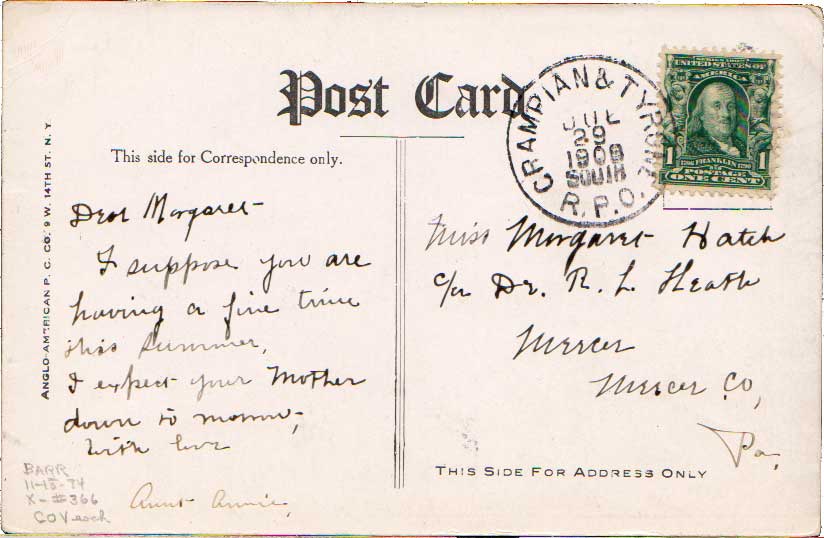 Post Card
This side for Correspondence only.
ANGLO-AMERICAN P. C. CO. 9 W. 14TH ST. N. Y.
Dear Margaret-
I suppose you are
having a fine time
this summer,
I expect your Mother
down to morrow,
With love
Aunt Annie,
BARR
X-#366
GRAMPIAN & TYRONE
JUL
29
1908
SOUTH
R.P.O.
SERIES 1902
UNITED STATES OF
AMERICA
1 1706 FRANKLIN 1790 1
POSTAGE
ONE CENT
Miss Margaret Hatch
c/o Dr. R. L. Heath
Mercer
Mercer Co,
Pa,
THIS SIDE FOR ADDRESS ONLY